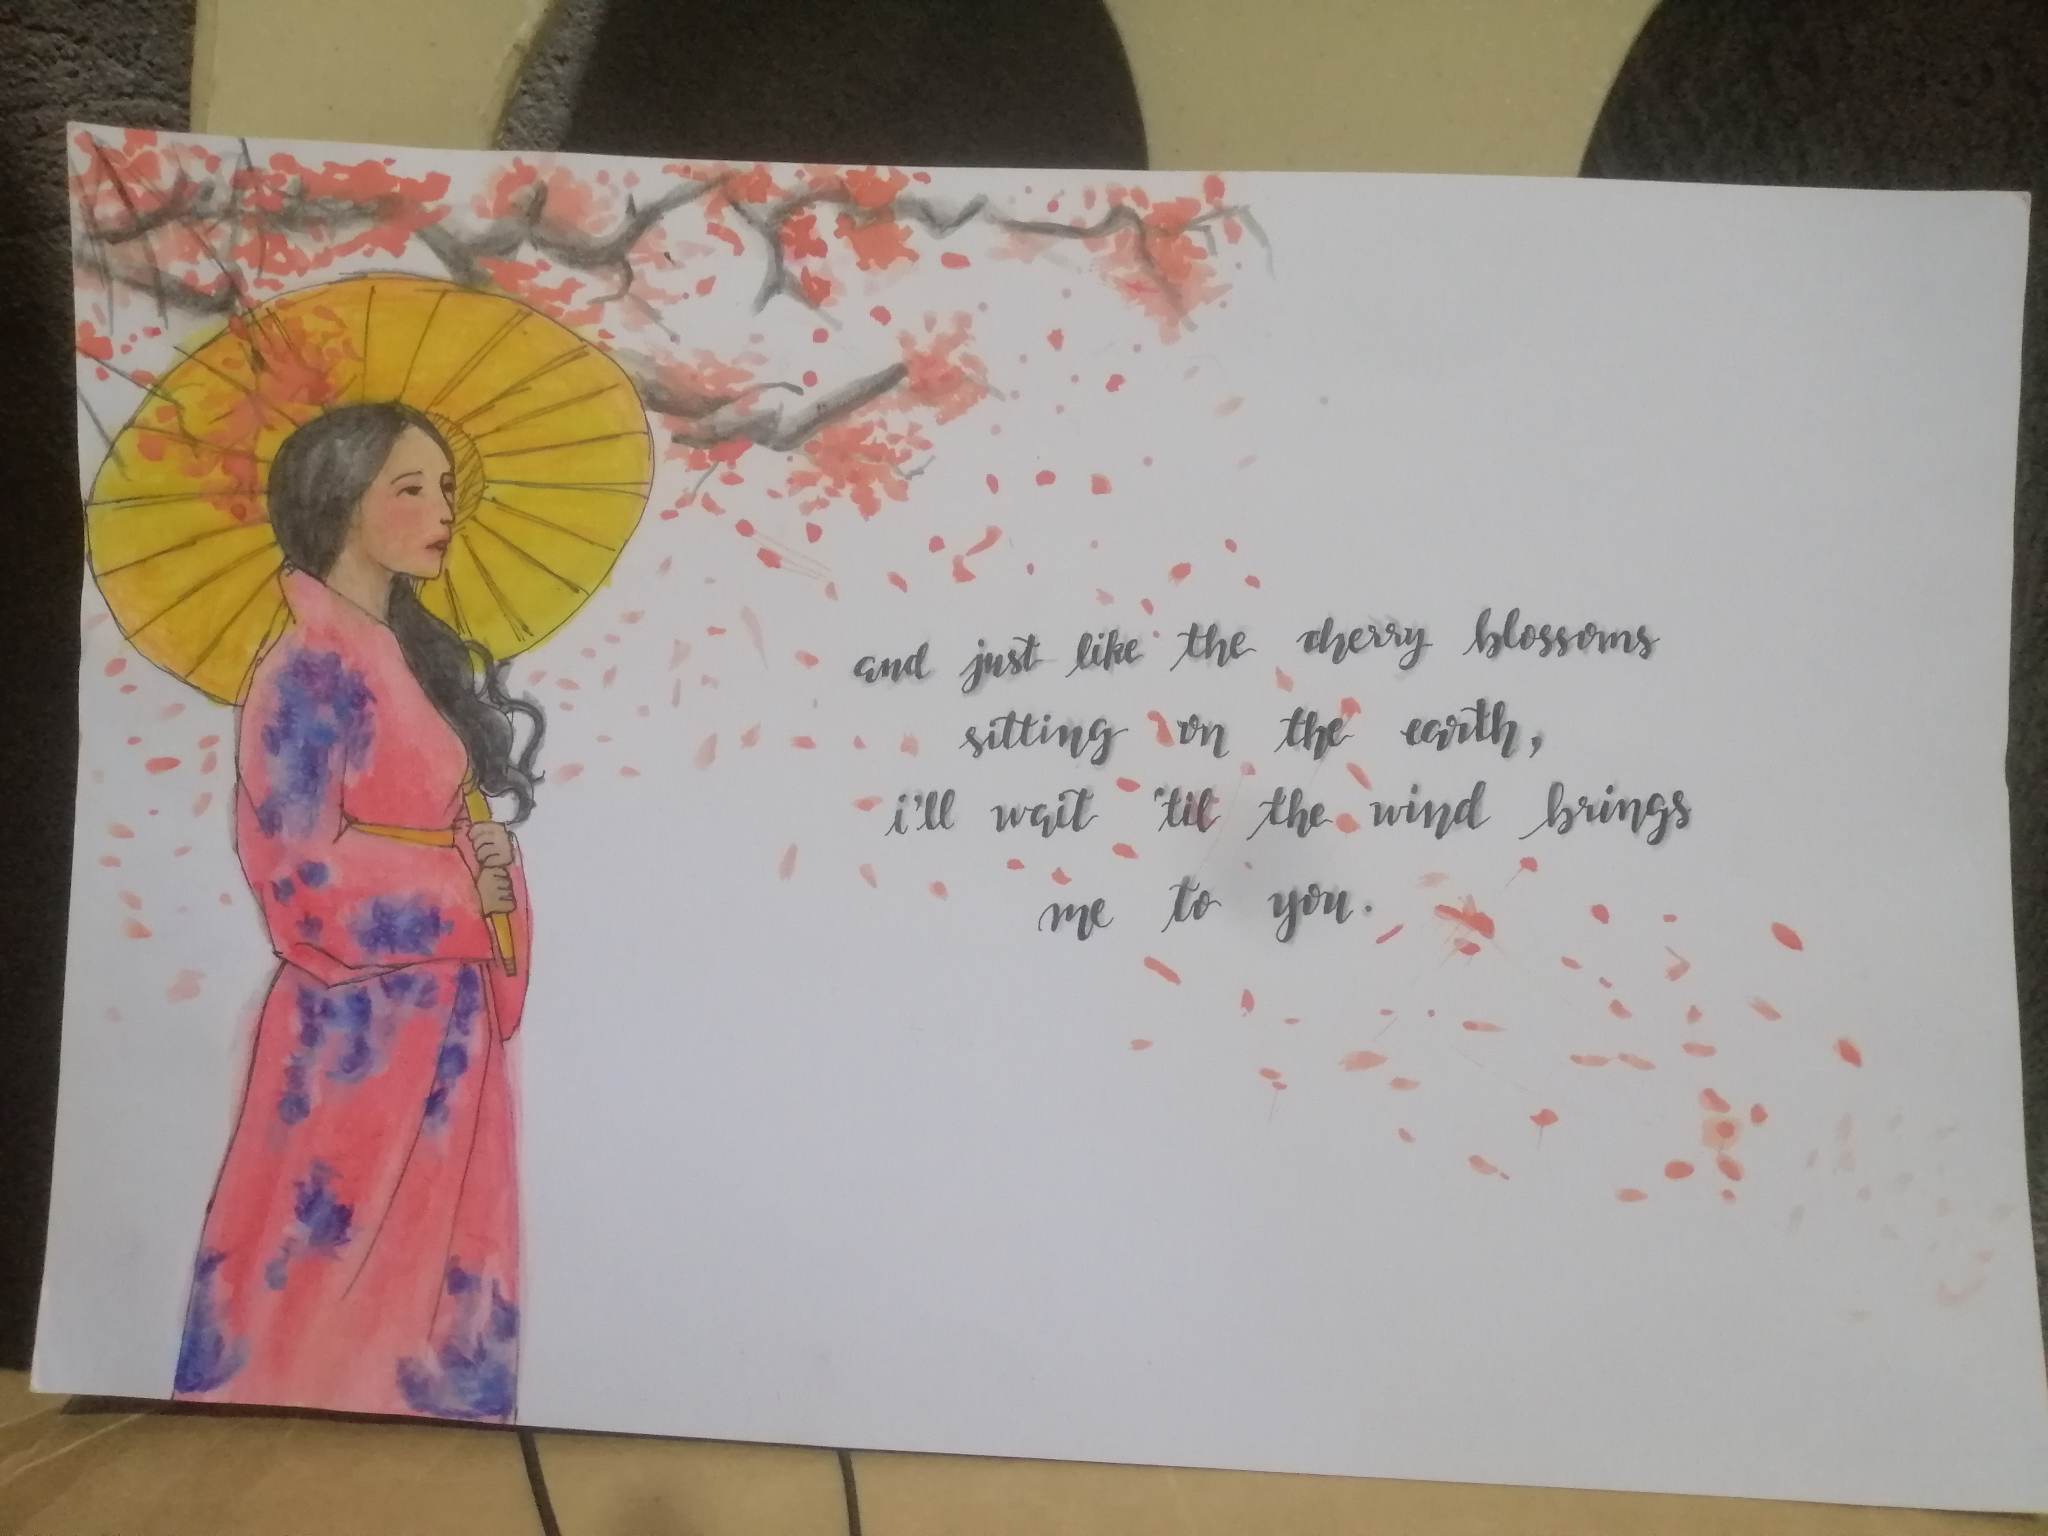 and just like the cherry blossoms
sitting on the earth,
i'll wait 'til the wind brings
me to you.